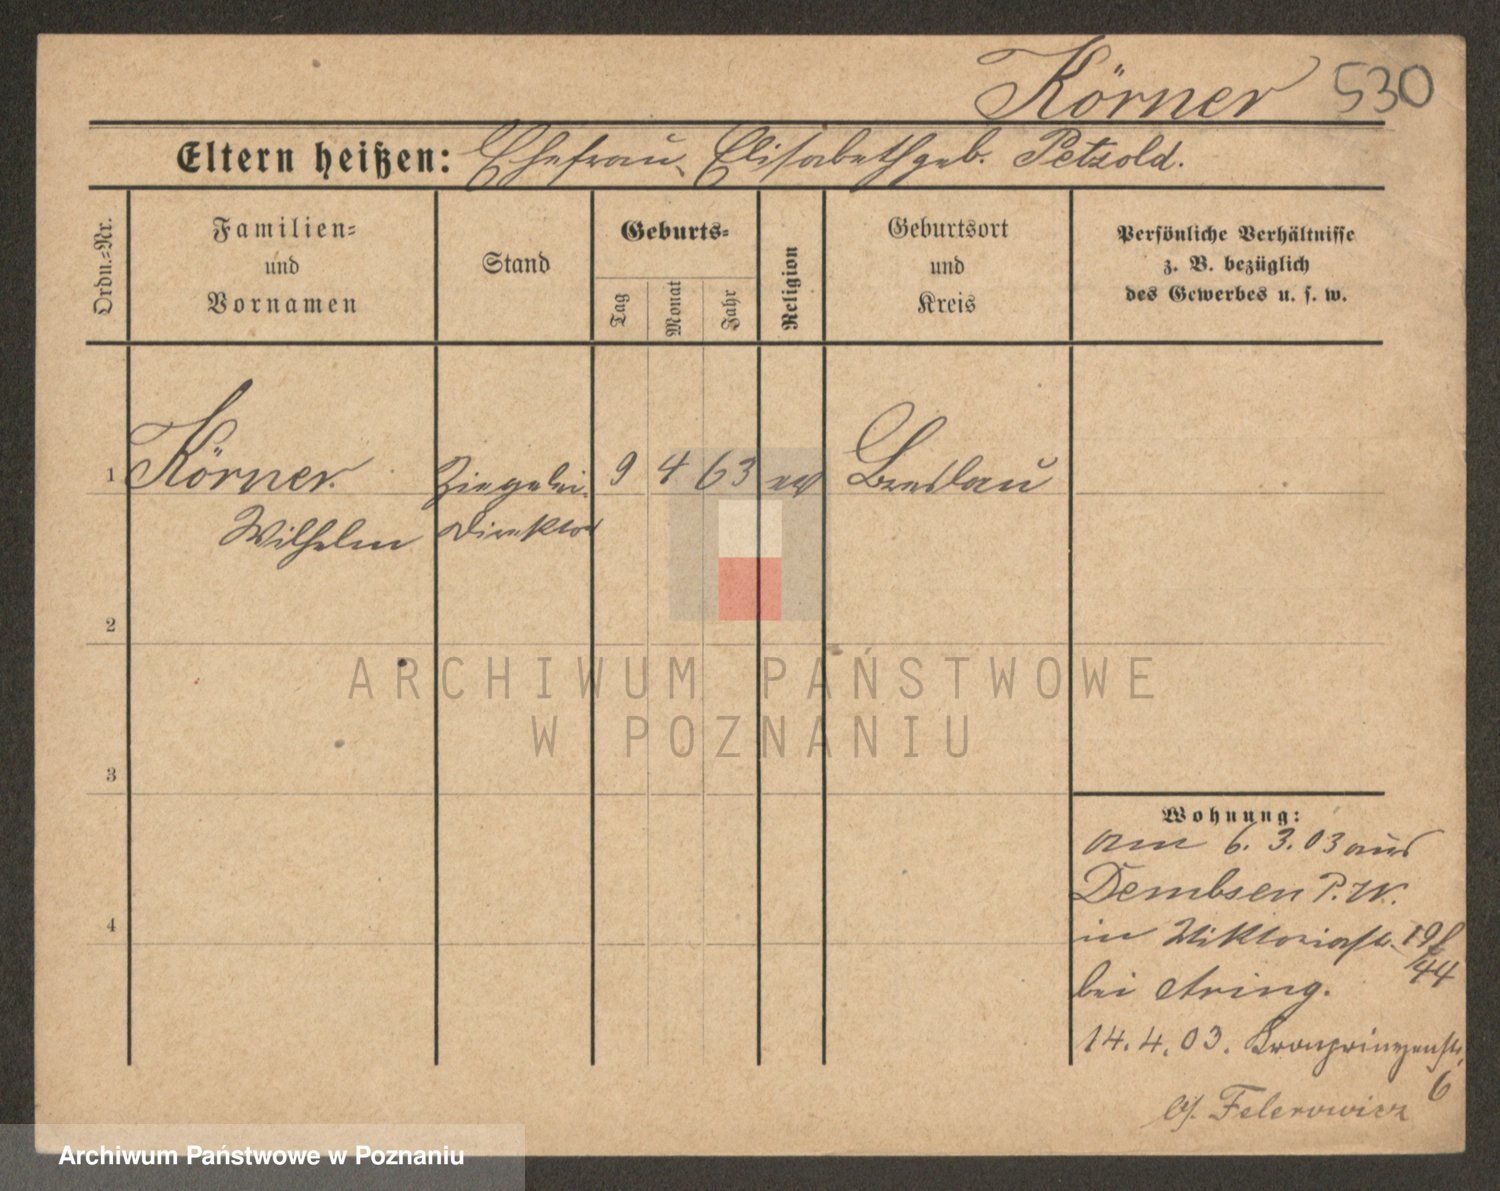 Körner 530
Eltern heißen: Ehefrau Elisabeth geb. Petzold.
Ordn.=Nr.
Familien=
und
Vornamen
Stand
Geburts=
Tag
Monat
Jahr
Religion
Geburtsort
und
Kreis
Persönliche Verhältnisse
z. B. bezüglich
des Gewerbes u. s. w.
1 Körner Ziegelei- 9 4 63 ev Breslau
Wilhelm Direktor
2
ARCHIWUM PAŃSTWOWE
W POZNANIU
3
Wohnung:
am 6. 3. 03 aus
Dembsen P. W.
4
in Viktoriastr.
44
bei Aring.
14. 4. 03. Kronprinzenstr.
6
b/. Felerowicz
Archiwum Państwowe w Poznaniu